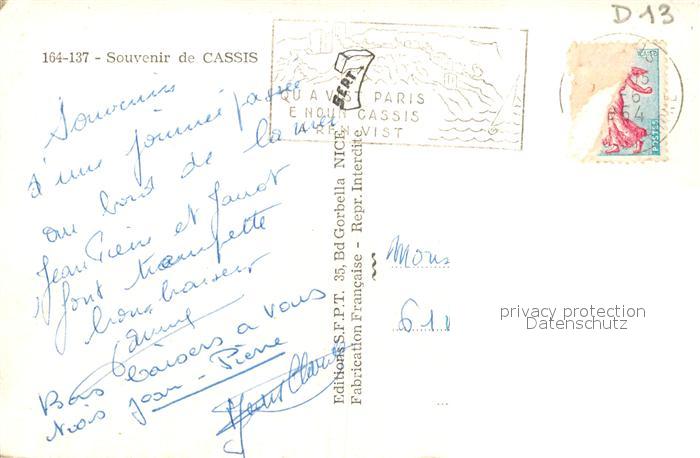 D13
164-137 - Souvenir de CASSIS
QU A VIST PARIS
E NOUN CASSIS
REN VIST
BEAT
POSTES
64
Souvenirs
d'une journée passée
au bord de la mer
Jean Pierre et
font trempette
bons baisers
Bons baisers à vous
Jean-Pierre
Editions S.F.P.T. 35, Bd Gorbella NICE
Fabrication Française - Repr. Interdite
Mons
61
privacy protection
Datenschutz